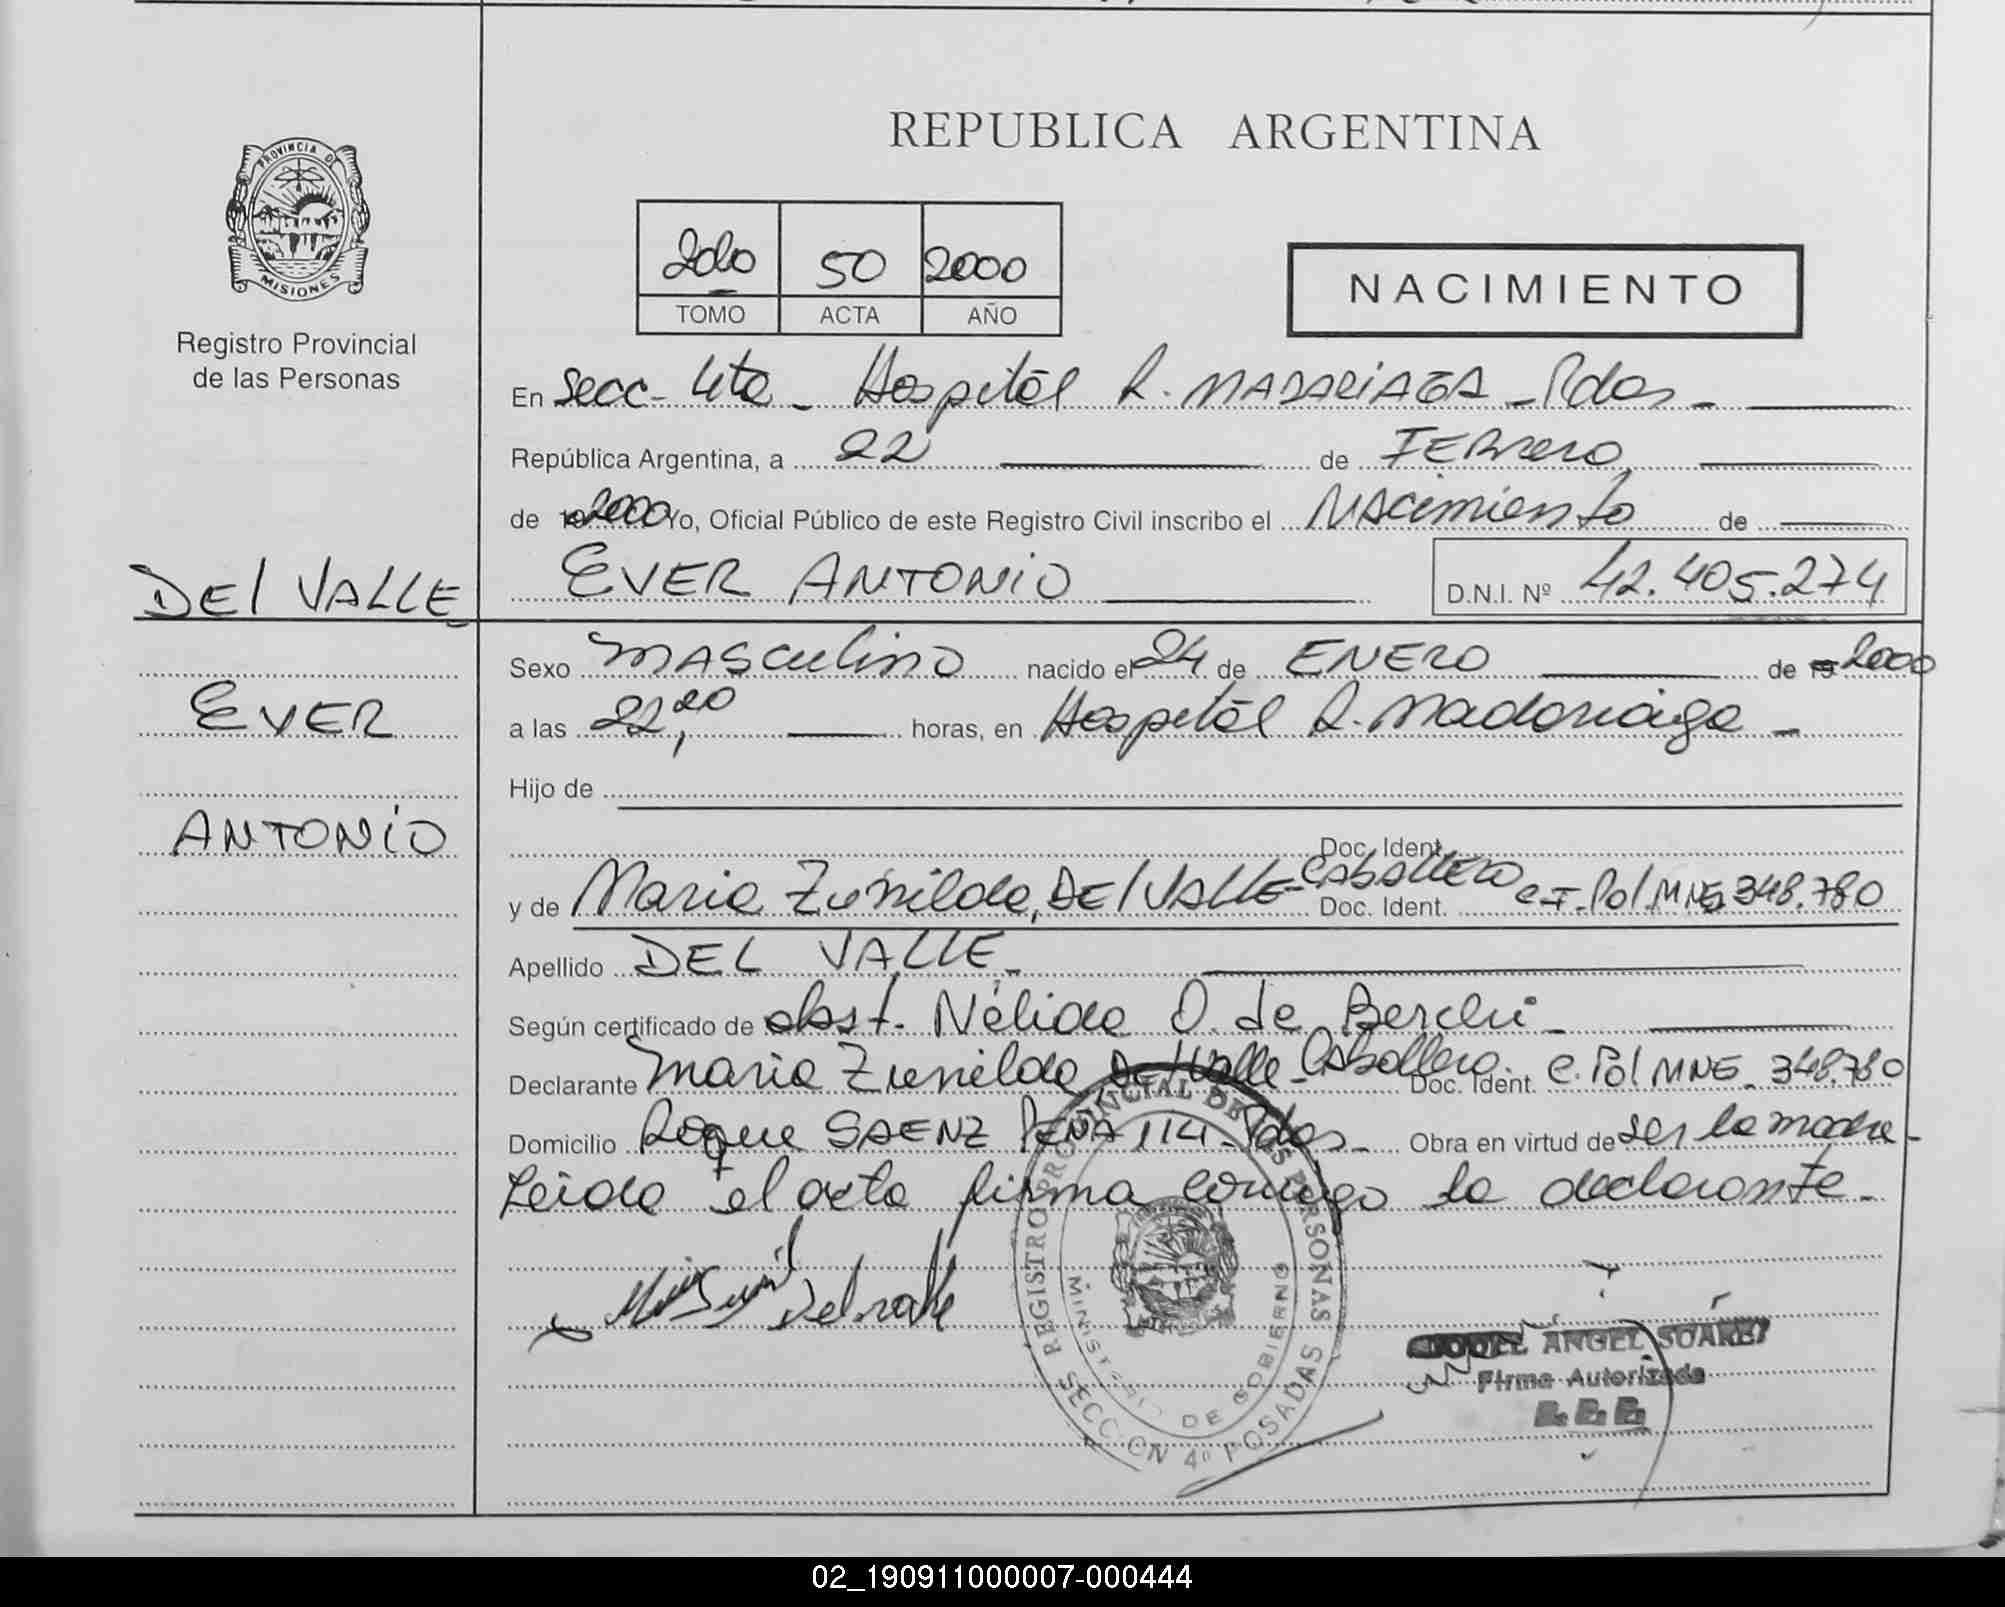 REPUBLICA ARGENTINA
PROVINCIA DE MISIONES
Registro Provincial
de las Personas
2000 50 2000
TOMO ACTA AÑO
NACIMIENTO
En Secc- 4ta - Hospital R. MADARIAGA - Pdas -
República Argentina, a 22 de FEBrero
de 19 2000 Yo, Oficial Público de este Registro Civil inscribo el NAcimiento de
DEl VALLE EVER ANTONIO D.N.I. Nº 42.405.274
Sexo MASculino nacido el 24 de ENERO de 19 2000
EVER
a las 22,20 horas, en Hospital R. Madariaga -
Hijo de
ANTONIO
Doc. Ident.
y de Maria Zunilda, DEl VALLE - CABALLERO Doc. Ident. C.I. Pol. MNES 348.780
Apellido DEL VALLE -
Según certificado de obst. Nélida O. de Berchi -
Declarante Maria Zunilda Del Valle - Caballero Doc. Ident. C. Pol MNE - 348.780
Domicilio Roque SAENZ PEÑA 114 - Pdas - Obra en virtud de ser la madre -
Leida el acta firma conmigo la declarante -
Del valle
REGISTRO PROVINCIAL DE LAS PERSONAS
MINISTERIO DE GOBIERNO
SECCION 4º POSADAS
ANGEL SUAREZ
Firma Autorizada
02_190911000007-000444